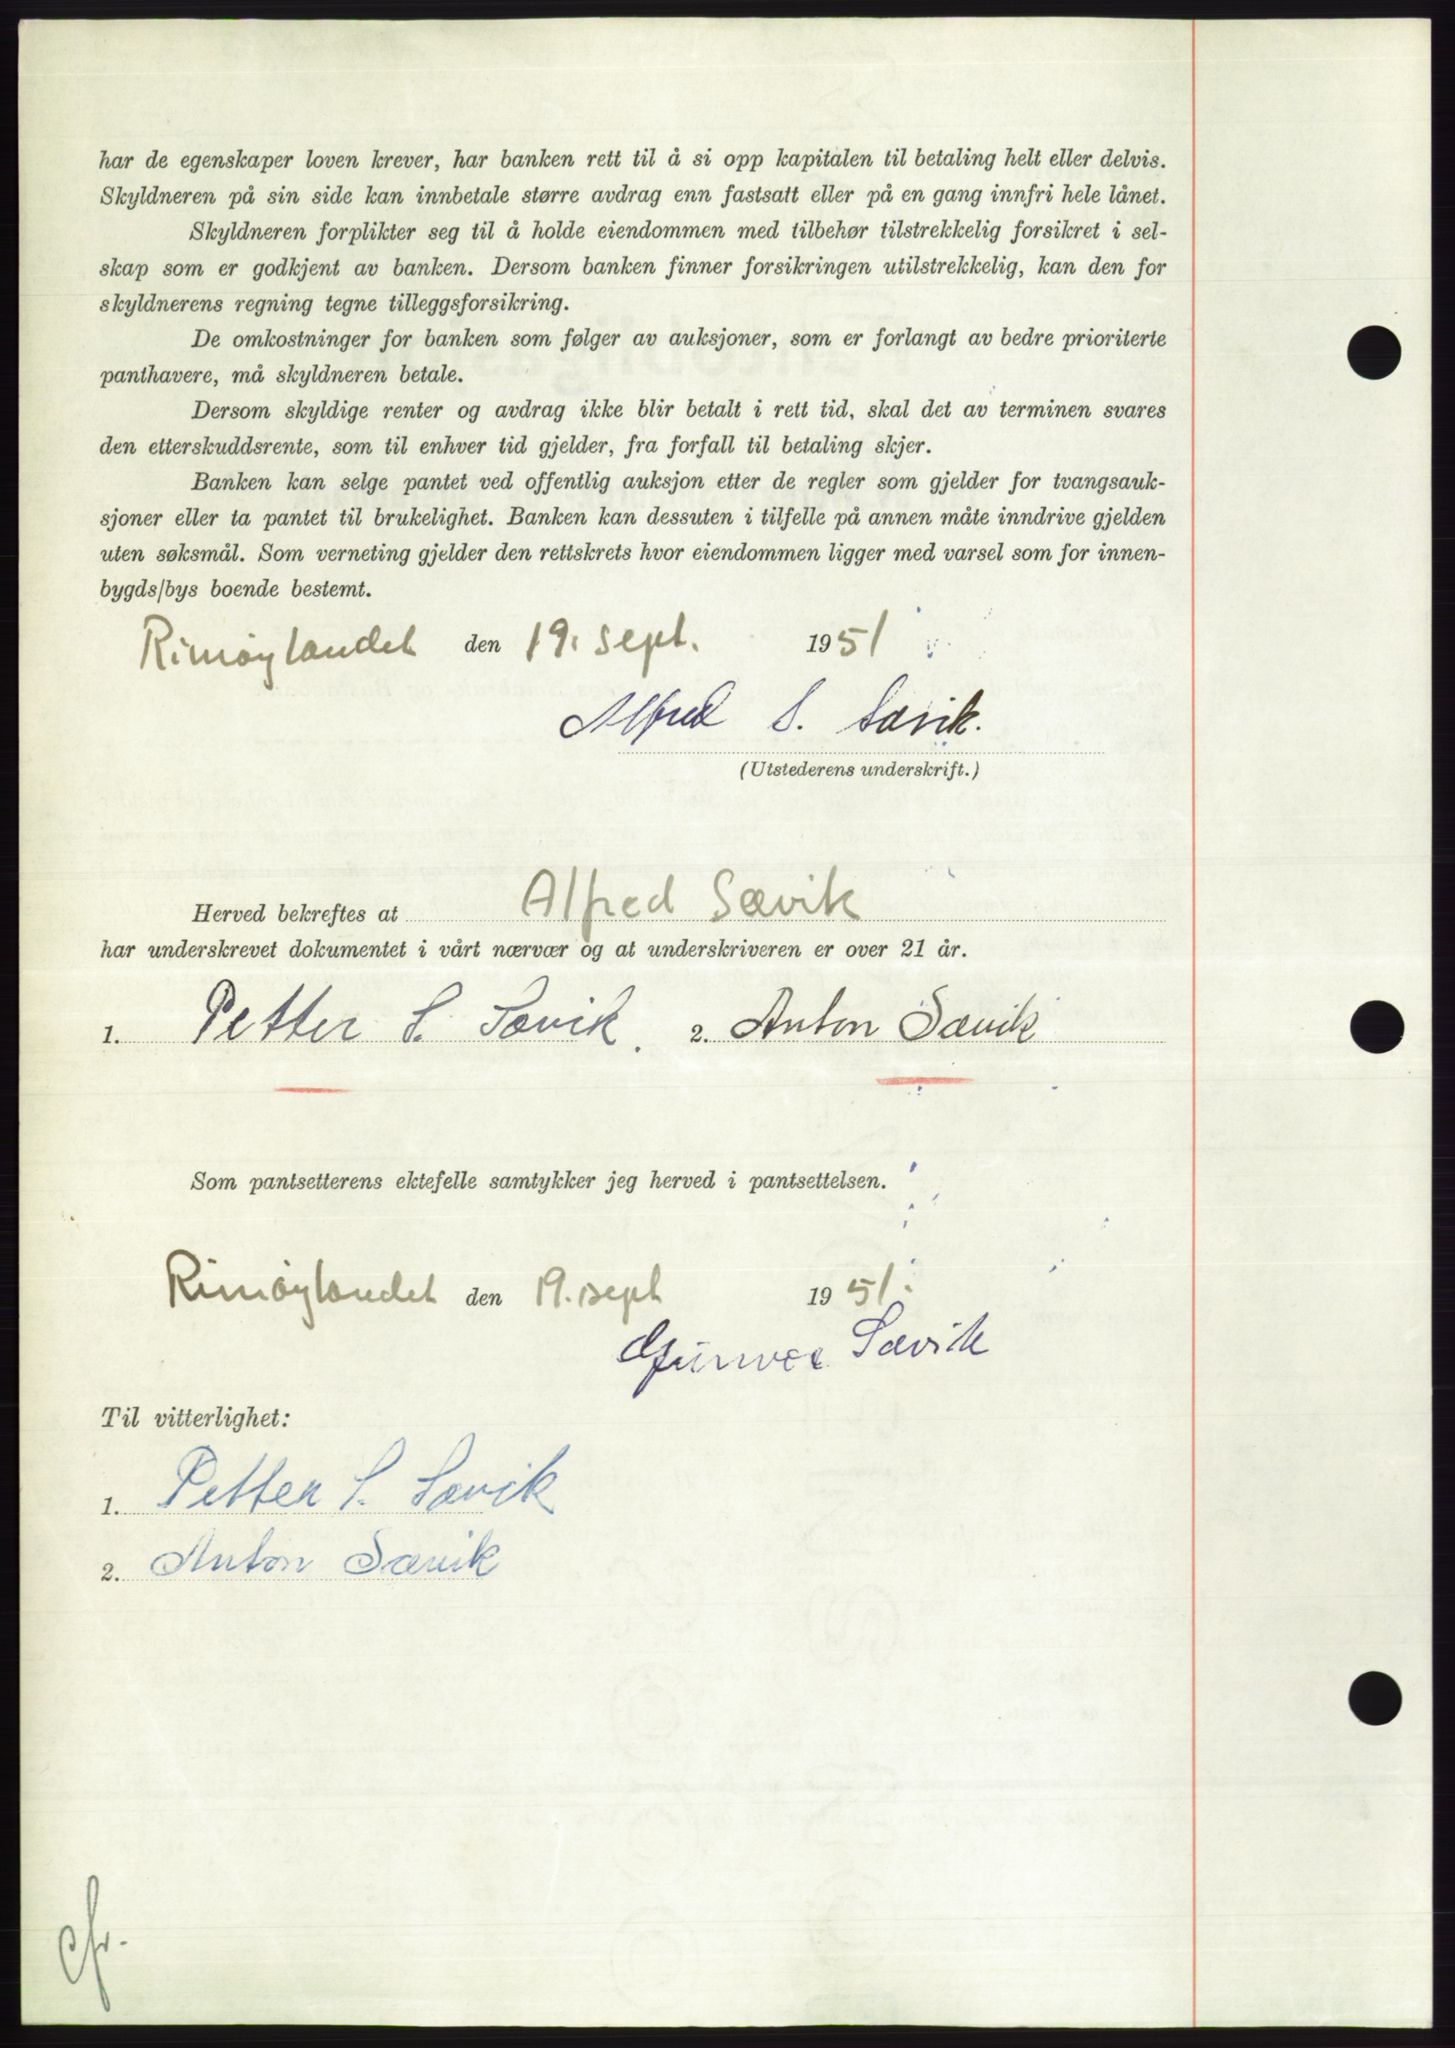 har de egenskaper loven krever, har banken rett til å si opp kapitalen til betaling helt eller delvis.
Skyldneren på sin side kan innbetale større avdrag enn fastsatt eller på en gang innfri hele lånet.
Skyldneren forplikter seg til å holde eiendommen med tilbehør tilstrekkelig forsikret i sel-
skap som er godkjent av banken. Dersom banken finner forsikringen utilstrekkelig, kan den for
skyldnerens regning tegne tilleggsforsikring.
De omkostninger for banken som følger av auksjoner, som er forlangt av bedre prioriterte
panthavere, må skyldneren betale.
Dersom skyldige renter og avdrag ikke blir betalt i rett tid, skal det av terminen svares
den etterskuddsrente, som til enhver tid gjelder, fra forfall til betaling skjer.
Banken kan selge pantet ved offentlig auksjon etter de regler som gjelder for tvangsauk-
sjoner eller ta pantet til brukelighet. Banken kan dessuten i tilfelle på annen måte inndrive gjelden
uten søksmål. Som verneting gjelder den rettskrets hvor eiendommen ligger med varsel som for innen-
bygds/bys boende bestemt.
Rimøylandet den 19. sept. 1951
Alfred S. Sævik.
(Utstederens underskrift.)
Herved bekreftes at Alfred Sævik
har underskrevet dokumentet i vårt nærvær og at underskriveren er over 21 år.
1. Petter S. Sævik. 2. Anton Sævik
Som pantsetterens ektefelle samtykker jeg herved i pantsettelsen.
Rimøylandet den 19. sept 1951.
Sævik
Til vitterlighet:
1. Petter S. Sævik
2. Anton Sævik